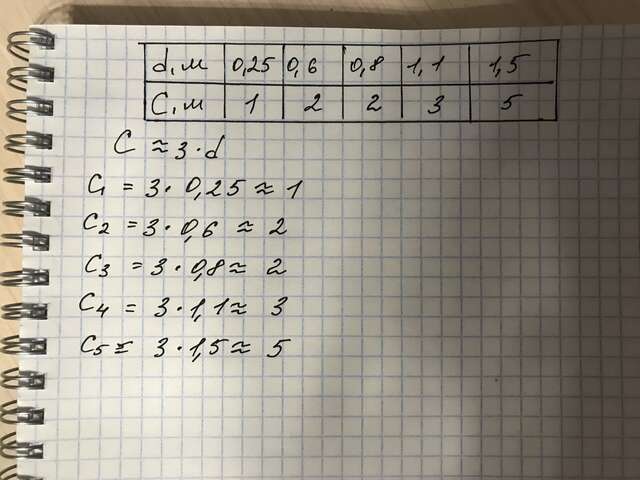 d, м 0,25 0,6 0,8 1,1 1,5
C, м 1 2 2 3 5
C ≈ 3·d
C₁ = 3·0,25 ≈ 1
C₂ = 3·0,6 ≈ 2
C₃ = 3·0,8 ≈ 2
C₄ = 3·1,1 ≈ 3
C₅ = 3·1,5 ≈ 5